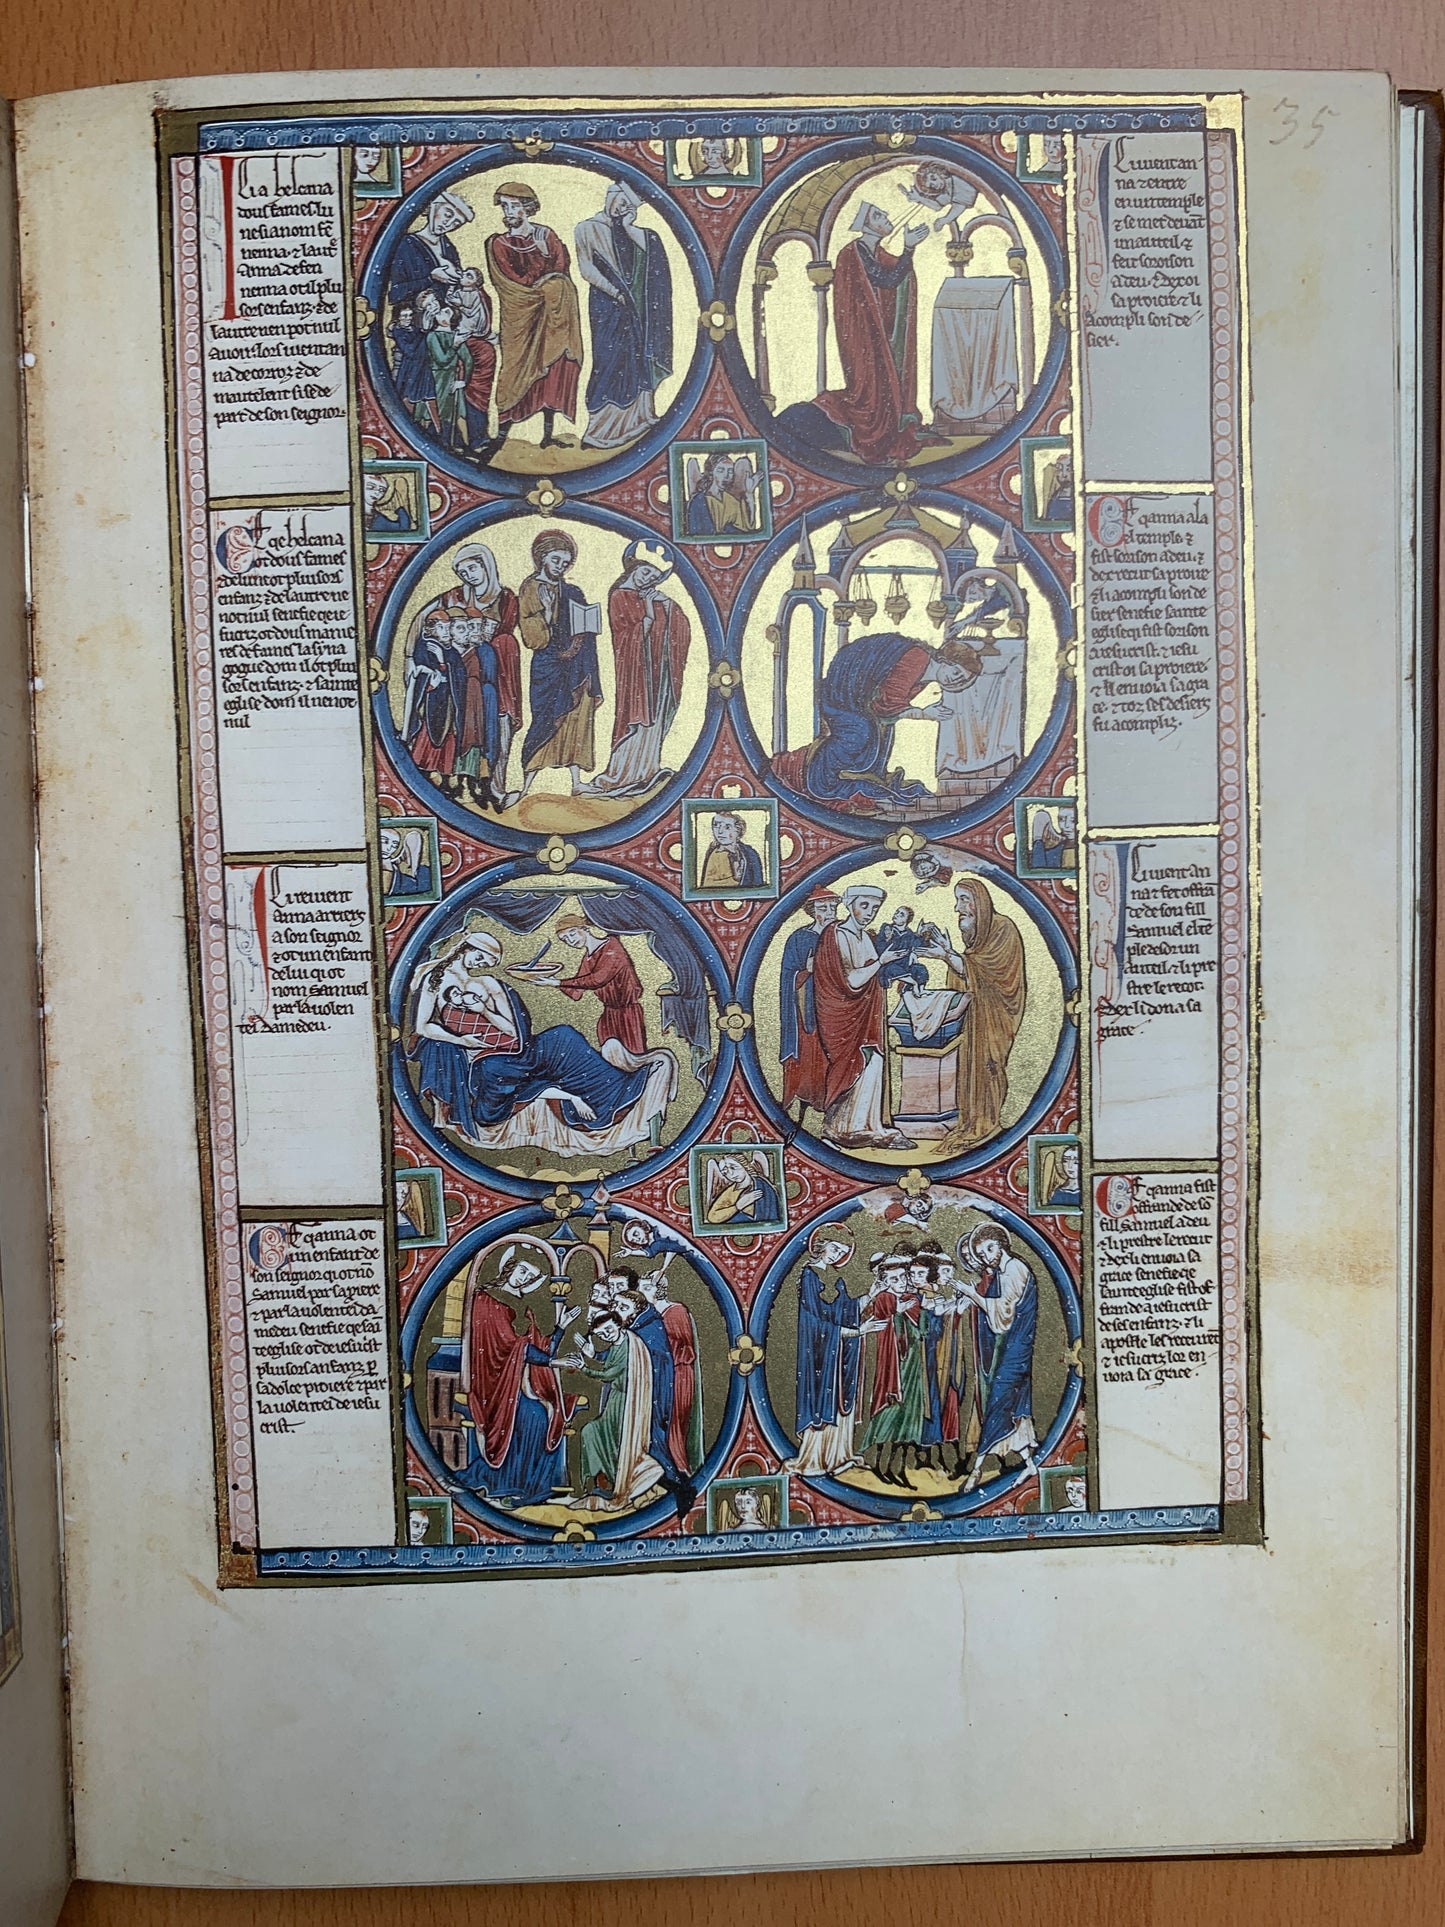 35
Ci a helcana
dous fames lu
ne si a nom fe
nenna · ⁊ lautr
anna de fen
nenna ot il plu
sors enfanz · ⁊ de
lautre nen pot nul
avoir · lors si vient an
na de corroz ⁊ de
mautelent si se de
part de son seignor ·
Et qe helcana
ot dous fames
⁊ de lune ot pluisors
enfanz ⁊ de lautre ne
not nul senefie qe ie
sucriz ot dous manie
res de fames la syna
gogue dom il ot plui
sors enfanz · ⁊ sainte
eglise dom il nen ot
nul
Ci revient
anna arriers
a son seignor
⁊ ot un enfant
de lui qi ot
nom samuel
par la volen
tei damedeu ·
Et qe anna ot
un enfant de
son seignor qi ot no
samuel par sa piere
⁊ par la volentei da
medeu senefie qe sai
te eglise ot de iesucrist
pluisors anfanz p
sa dolce proiere ⁊ par
la volentei de iesu
crist ·
Ci vient an
na ⁊ entre
en un temple
⁊ se met devant
un auteil ⁊
feit soroison
a deu · ⁊ dex oi
sa proiere ⁊ li
acompli son de
sier ·
Et qe anna a la
el temple ⁊
fist sorison a deu · ⁊
dex recut sa proiere
⁊ li acompli son de
sier senefie sainte
eglise qi fist sorison
a iesucrist · ⁊ iesu
crist oi sa proiere ·
⁊ li envoia sa gra
ce · ⁊ toz ses desiers
fu acompliz ·
Ci vient an
na ⁊ fet offran
de de son fill
samuel el te
ple desor un
auteil · ⁊ li pre
stre le recoit ·
⁊ dex li dona sa
grace ·
Et qe anna fist
offrande de so
fill samuel a deu
⁊ li prestre le recut
⁊ dex li envoia sa
grace senefie qe
sainte eglise fist of
frande a iesucrist
de ses enfanz · ⁊ li
apostle les recurent
⁊ iesucriz lor en
voia sa grace ·